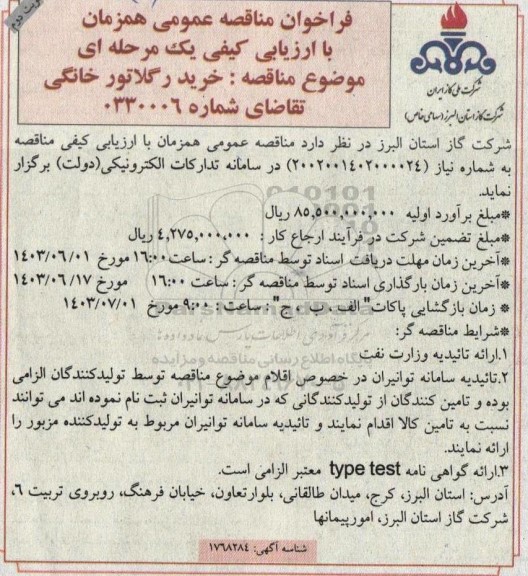 نوبت دوم
فراخوان مناقصه عمومی همزمان
با ارزیابی کیفی یک مرحله ای
موضوع مناقصه : خرید رگلاتور خانگی
تقاضای شماره ۰۳۳۰۰۰۶
شرکت ملی گاز ایران
شرکت گاز استان البرز (سهامی خاص)
شرکت گاز استان البرز در نظر دارد مناقصه عمومی همزمان با ارزیابی کیفی مناقصه
به شماره نیاز (۲۰۰۲۰۰۱۴۰۲۰۰۰۰۲۴) در سامانه تدارکات الکترونیکی(دولت) برگزار
نماید.
*مبلغ برآورد اولیه ۸۵,۵۰۰,۰۰۰,۰۰۰ ریال
*مبلغ تضمین شرکت در فرآیند ارجاع کار : ۴,۲۷۵,۰۰۰,۰۰۰ ریال
*آخرین زمان مهلت دریافت اسناد توسط مناقصه گر : ساعت ۱۶:۰۰ مورخ ۱۴۰۳/۰۶/۰۱
*آخرین زمان بارگذاری اسناد توسط مناقصه گر : ساعت ۱۶:۰۰ مورخ ۱۴۰۳/۰۶/۱۷
* زمان بازگشایی پاکات" الف ، ب ، ج" : ساعت : ۹:۰۰ مورخ ۱۴۰۳/۰۷/۰۱
*شرایط مناقصه گر:
۱.ارائه تائیدیه وزارت نفت
۲.تائیدیه سامانه توانیران در خصوص اقلام موضوع مناقصه توسط تولیدکنندگان الزامی
بوده و تامین کنندگان از تولیدکنندگانی که در سامانه توانیران ثبت نام نموده اند می توانند
نسبت به تامین کالا اقدام نمایند و تائیدیه سامانه توانیران مربوط به تولیدکننده مزبور را
ارائه نمایند.
۳.ارائه گواهی نامه type test معتبر الزامی است.
آدرس: استان البرز، کرج، میدان طالقانی، بلوارتعاون، خیابان فرهنگ، روبروی تربیت ۶،
شرکت گاز استان البرز، امورپیمانها
شناسه آگهی: ۱۷۶۸۲۸۴